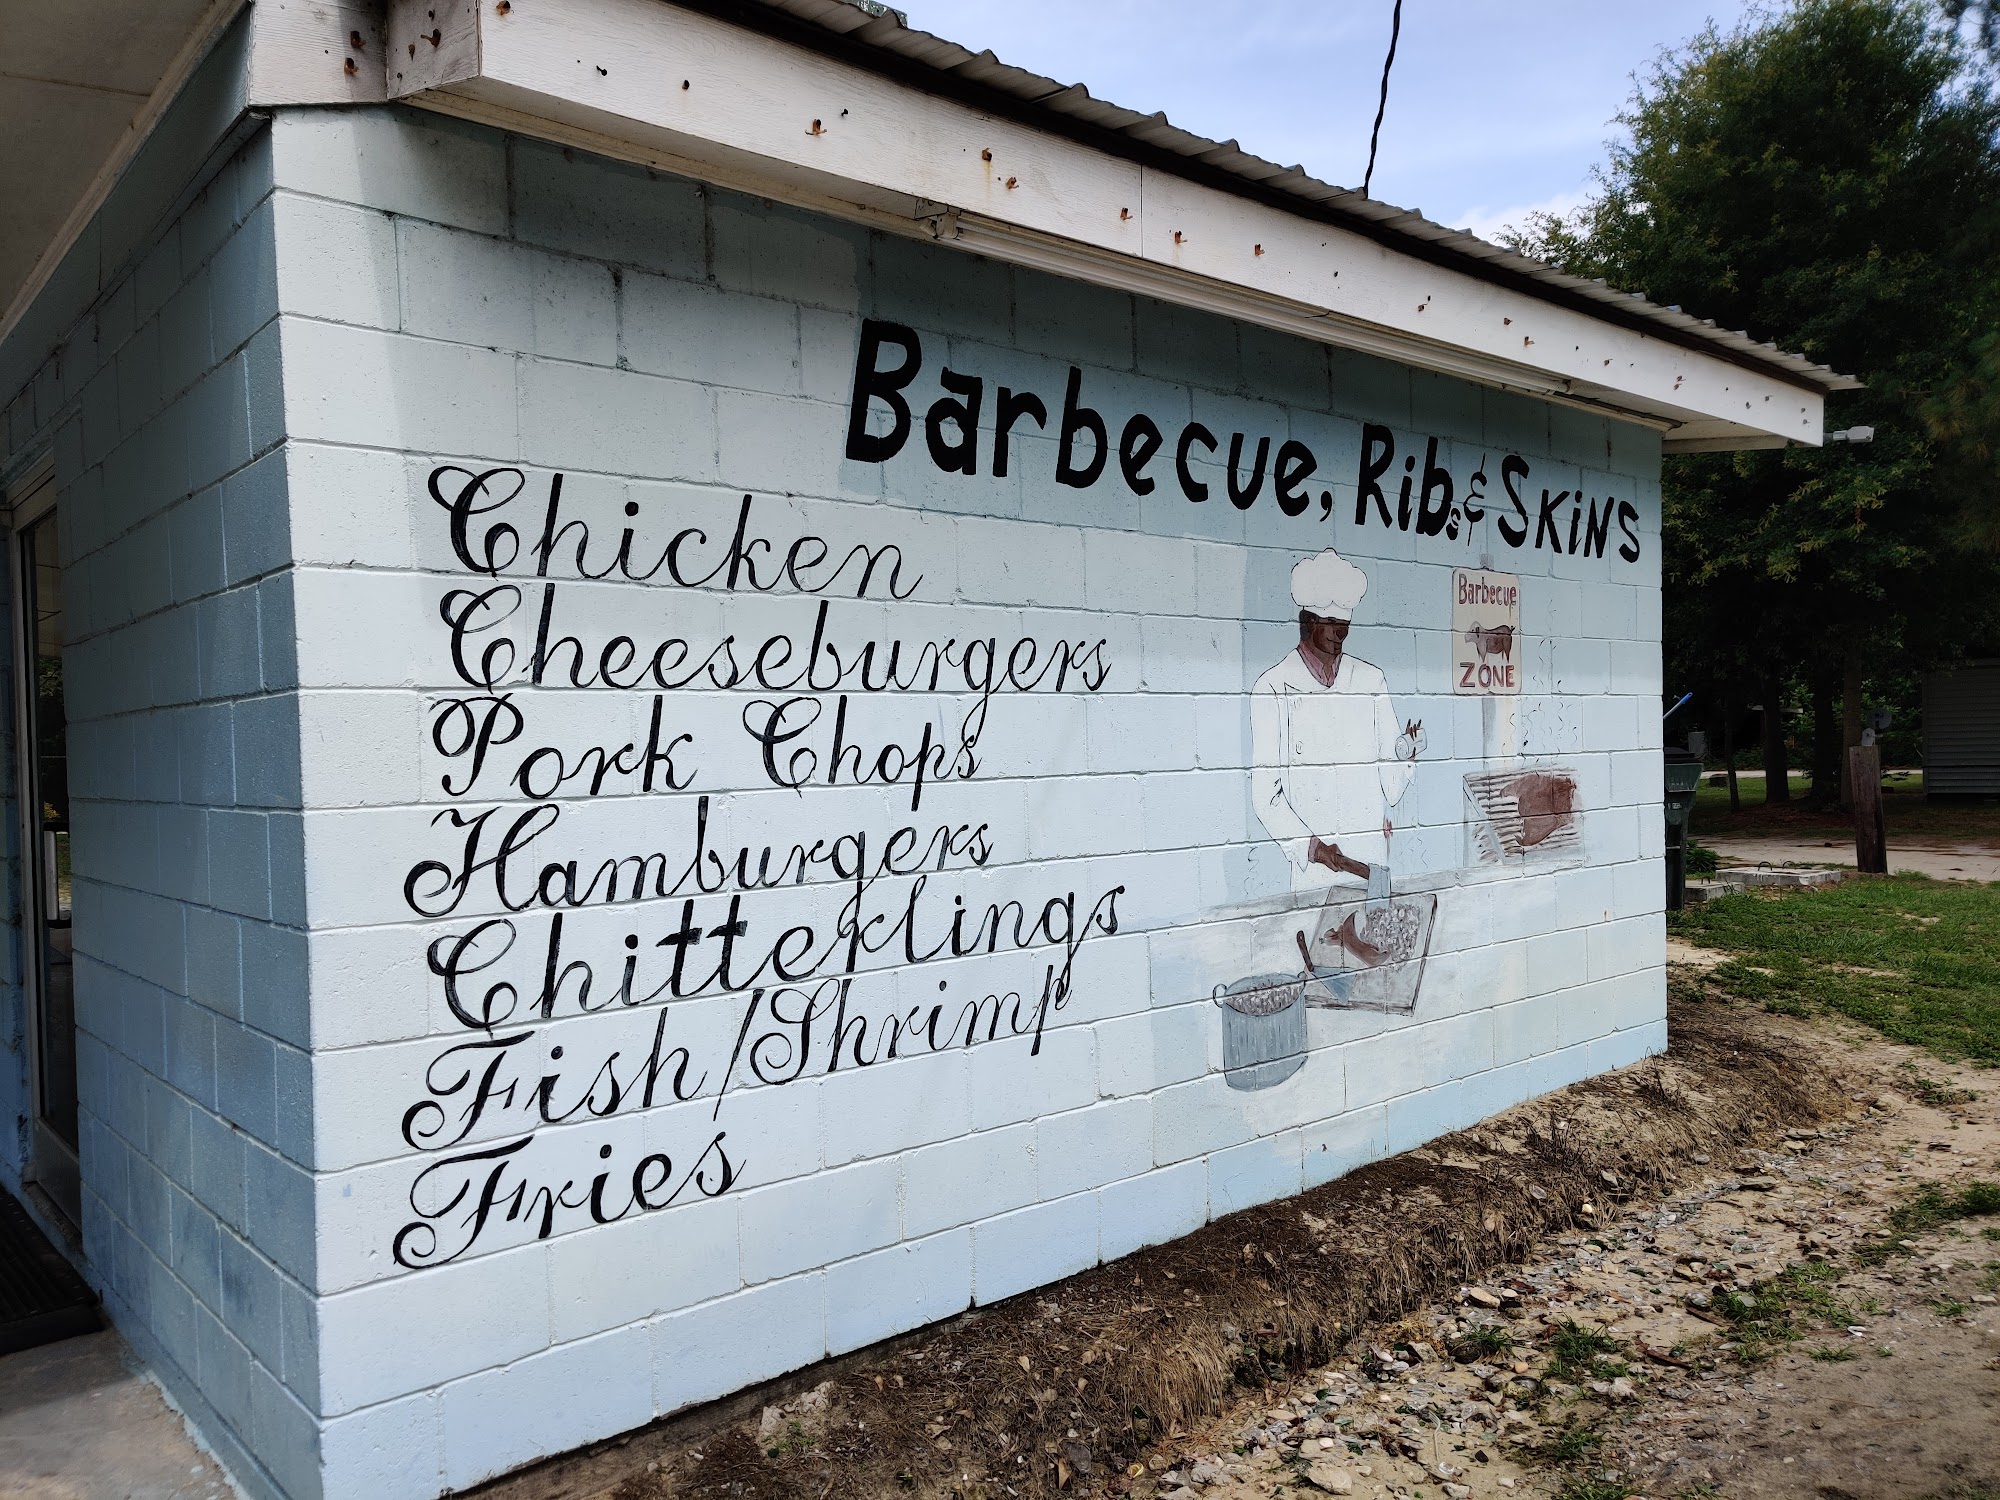 Barbecue, Ribs & SKiNS
Chicken
Cheeseburgers
Pork Chops
Hamburgers
Chitterlings
Fish/Shrimp
Fries
Barbecue
ZONE